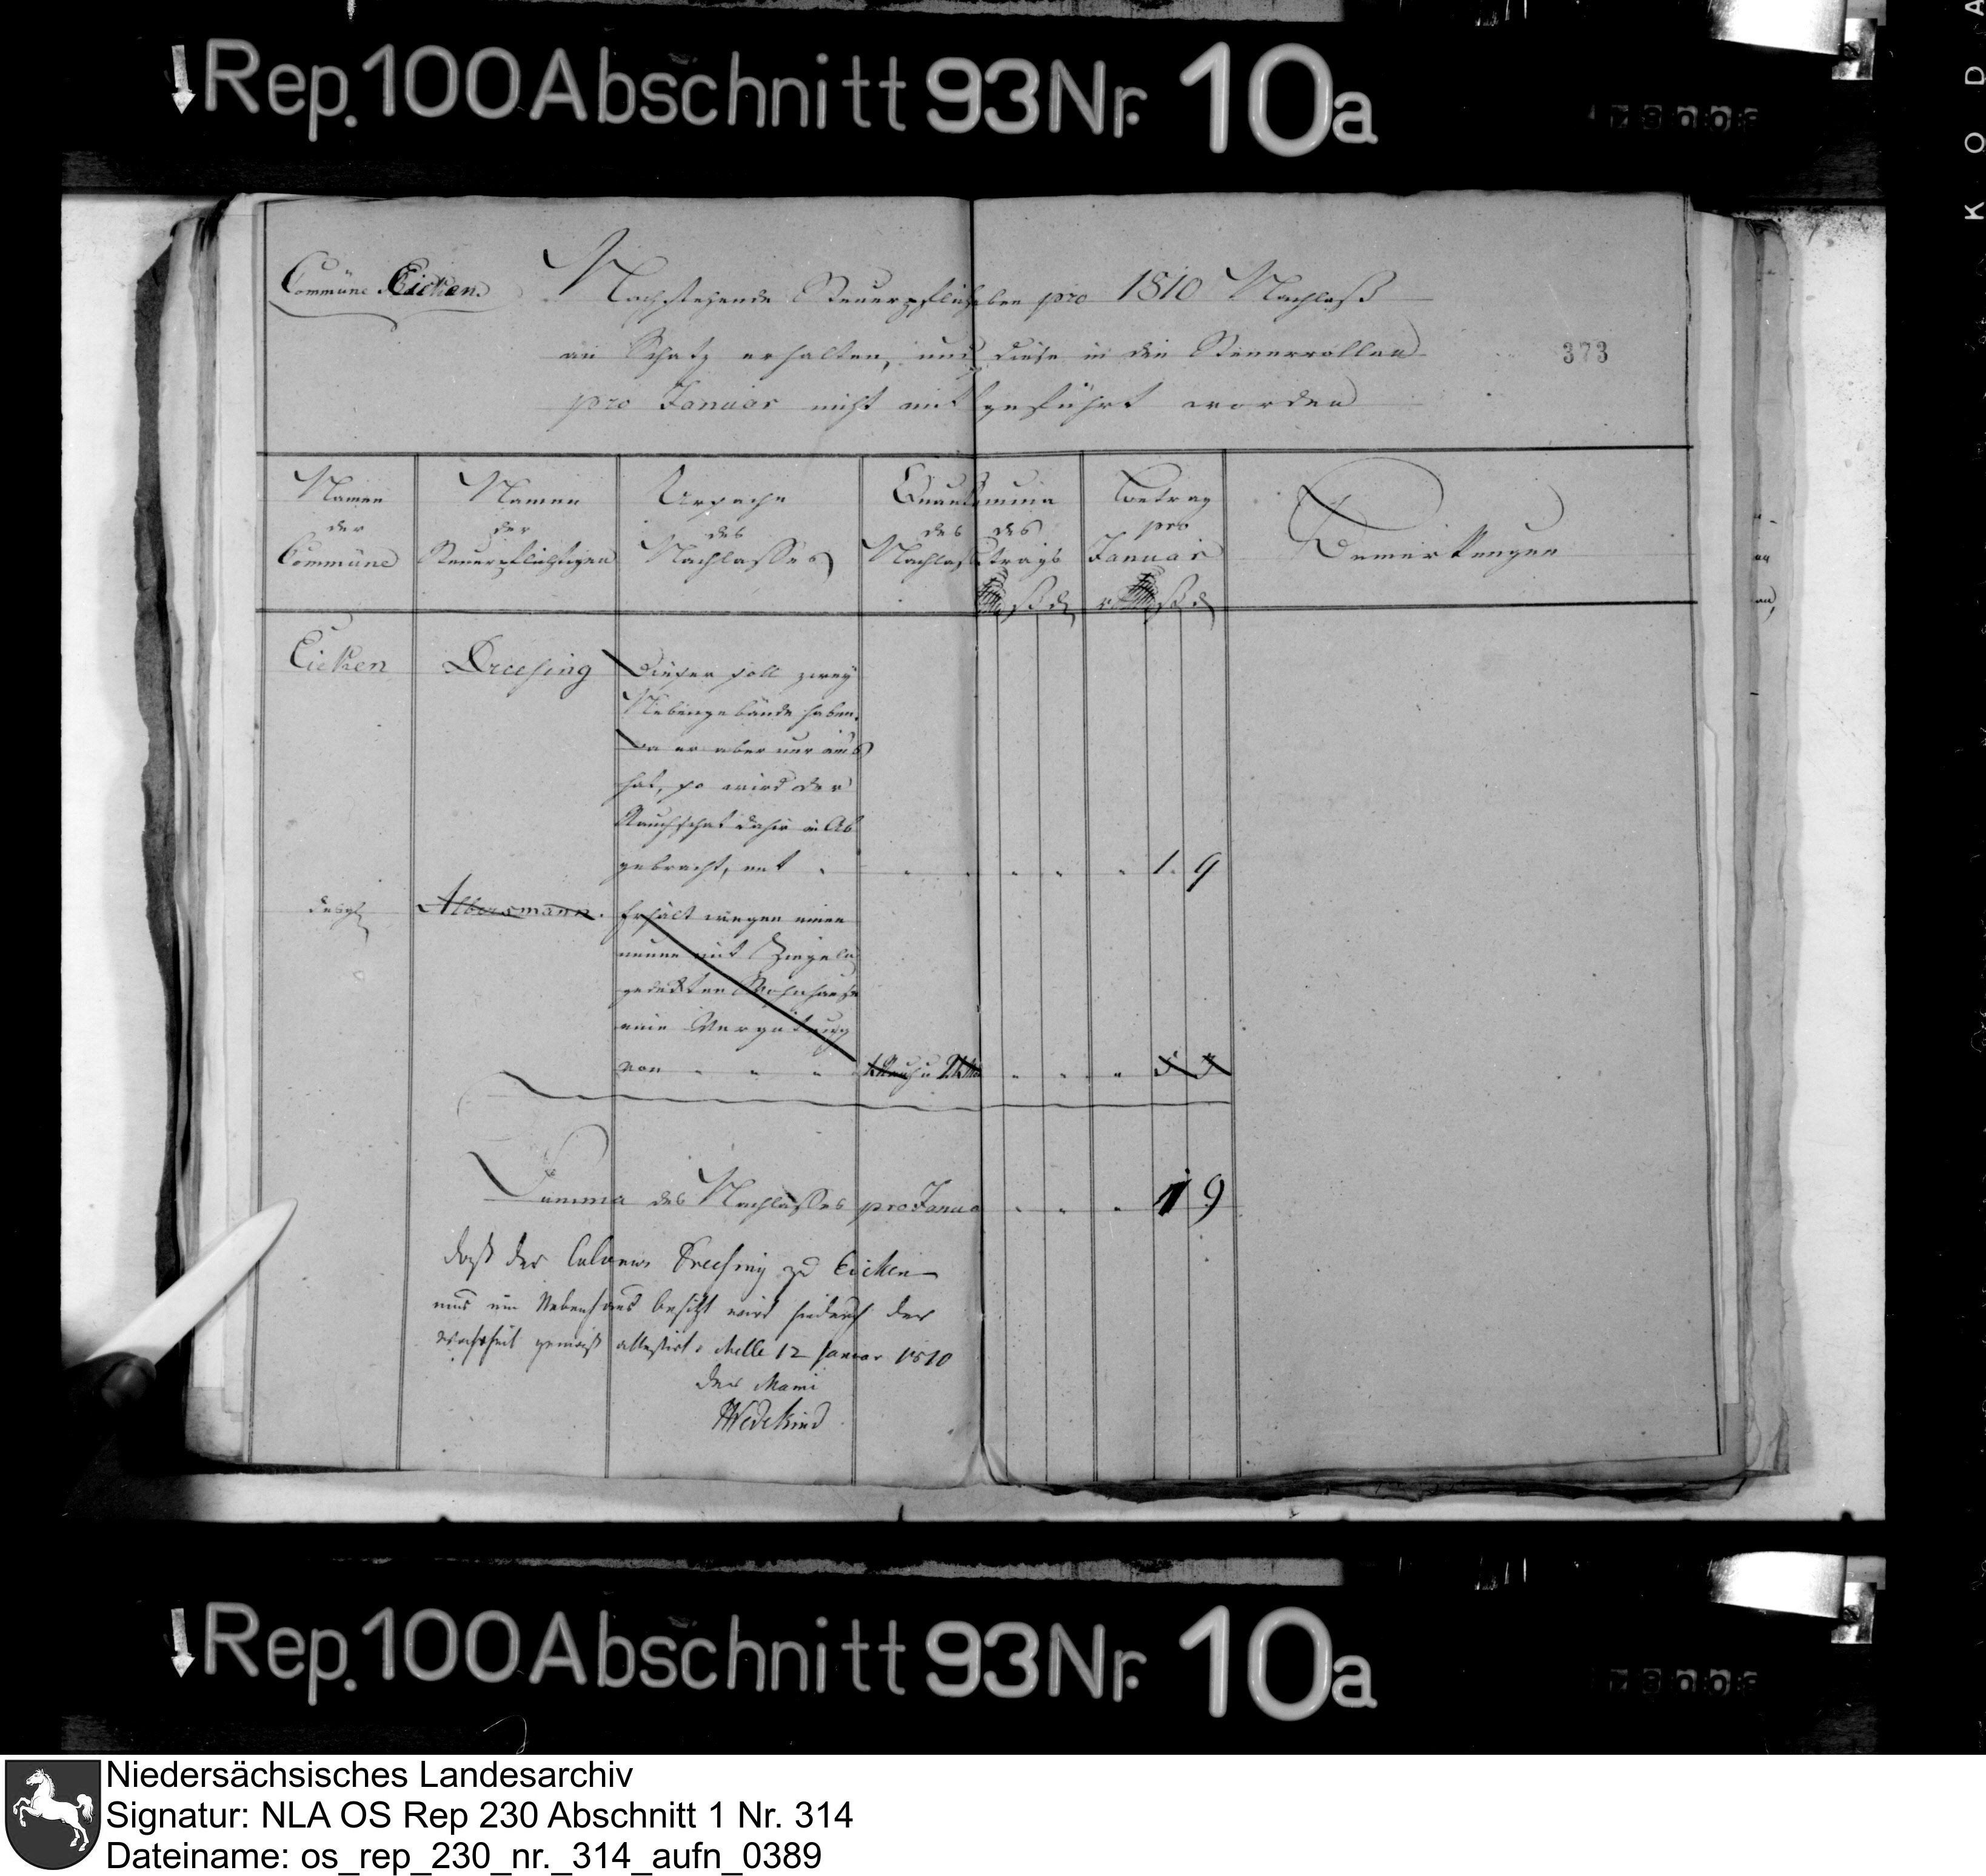 Rep. 100 Abschnitt 93 Nr. 10a
KODA
Commüne Eicken
Nachstehende Steuerpflichtige haben pro 1810 Nachlaß
an Schatz erhalten, und diese in die Steuerrollen
373
pro Januar nicht mit geführt worden
Namen der Commüne
Namen der Steuerpflichtigen
Ursache des Nachlasses
Quantum des Nachlaß
des trags
Betrag pro Januar
Bemerkungen
ß d
ß d
Eicken
Dreesing
Dieser soll zwey
Nebengebäude haben.
Da er aber nur eins
hat, so wird der
Rauchschatz dafür in Ab
gebracht, mit " " " " " " 1. 9
desgl
Albersmann.
Erhält wegen einen
neuen mit Ziegeln
gedeckten Wohnhause
eine Vergütung
von " " "
Summa des Nachlasses pro Janua " " " 1 9
daß der Colonus Dreesing zu Eicken
nur ein Nebenhaus besitzt wird hiedurch der
Wahrheit gemäß attestirt. Melle 12 Januar 1810
der Maire
Wedekind
Rep. 100 Abschnitt 93 Nr. 10a
Niedersächsisches Landesarchiv
Signatur: NLA OS Rep 230 Abschnitt 1 Nr. 314
Dateiname: os_rep_230_nr._314_aufn_0389